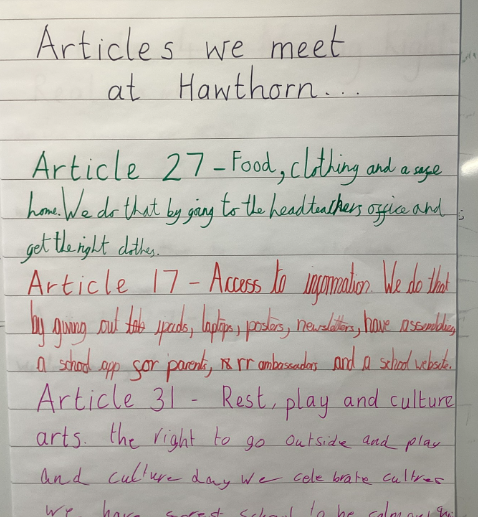 Articles we meet
at Hawthorn...
Article 27 - Food, clothing and a safe
home. We do that by going to the headteachers office and
get the right clothes.
Article 17 - Access to information. We do that
by giving out ipads, laptops, posters, newsletters, have assemblies,
a school app for parents, rr ambassadors and a school website.
Article 31 - Rest, play and culture
arts. the right to go outside and play
and culture day we celebrate cultres
we have forest school to be calm